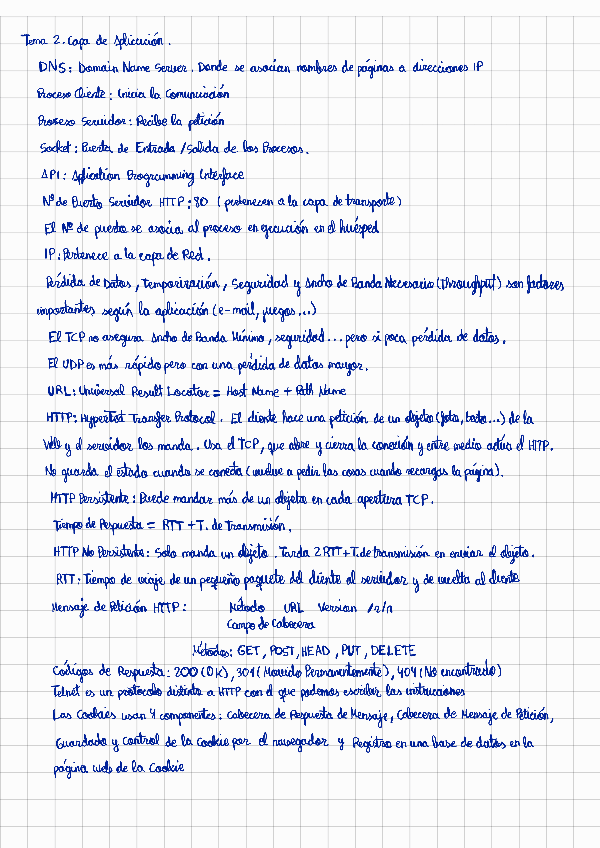 Tema 2. Capa de Aplicación.
DNS: Domain Name Server. Donde se asocian nombres de páginas a direcciones IP
Proceso Cliente: Inicia la Comunicación
Proceso Servidor: Recibe la petición
Socket: Puerta de Entrada/Salida de los Procesos.
API: Aplication Programming Interface
Nº de Puerto Servidor HTTP: 80 (pertenecen a la capa de transporte)
El Nº de puerto se asocia al proceso en ejecución en el huésped
IP: Pertenece a la capa de Red.
Pérdida de Datos, Temporización, Seguridad y Ancho de Banda Necesario (Throughput) son factores
importantes según la aplicación (e-mail, juegos...)
El TCP no asegura Ancho de Banda Mínimo, seguridad... pero si poca pérdida de datos.
El UDP es más rápido pero con una pérdida de datos mayor.
URL: Universal Result Locator = Host Name + Path Name
HTTP: HyperText Transfer Protocol. El cliente hace una petición de un objeto (foto, texto...) de la
Web y el servidor los manda. Usa el TCP, que abre y cierra la conexión y entre medio actúa el HTTP.
No guarda el estado cuando se conecta (vuelve a pedir las cosas cuando recargas la página).
HTTP Persistente: Puede mandar más de un objeto en cada apertura TCP.
Tiempo de Respuesta = RTT + T. de Transmisión.
HTTP No Persistente: Solo manda un objeto. Tarda 2RTT+T.de transmisión en enviar el objeto.
RTT: Tiempo de viaje de un pequeño paquete del cliente al servidor y de vuelta al cliente
Mensaje de Petición HTTP: Método URL Version /r/n
Campo de Cabecera
Métodos: GET, POST, HEAD, PUT, DELETE
Códigos de Respuesta: 200 (OK), 301 (Movido Permanentemente), 404 (No encontrado)
Telnet es un protocolo distinto a HTTP con el que podemos escribir las instrucciones
Las Cookies usan 4 componentes: Cabecera de Respuesta de Mensaje, Cabecera de Mensaje de Petición,
Guardado y control de la Cookie por el navegador y Registro en una base de datos en la
página web de la Cookie